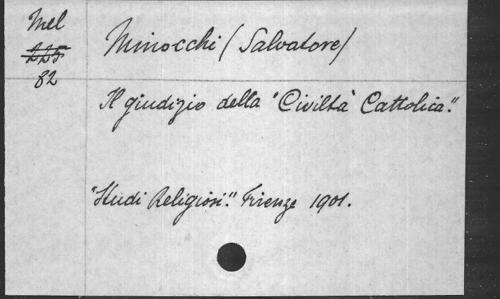 Mel
225
82
Minocchi (Salvatore)
Il giudizio della "Civiltà Cattolica".
"Studi Religiosi". Firenze 1901.